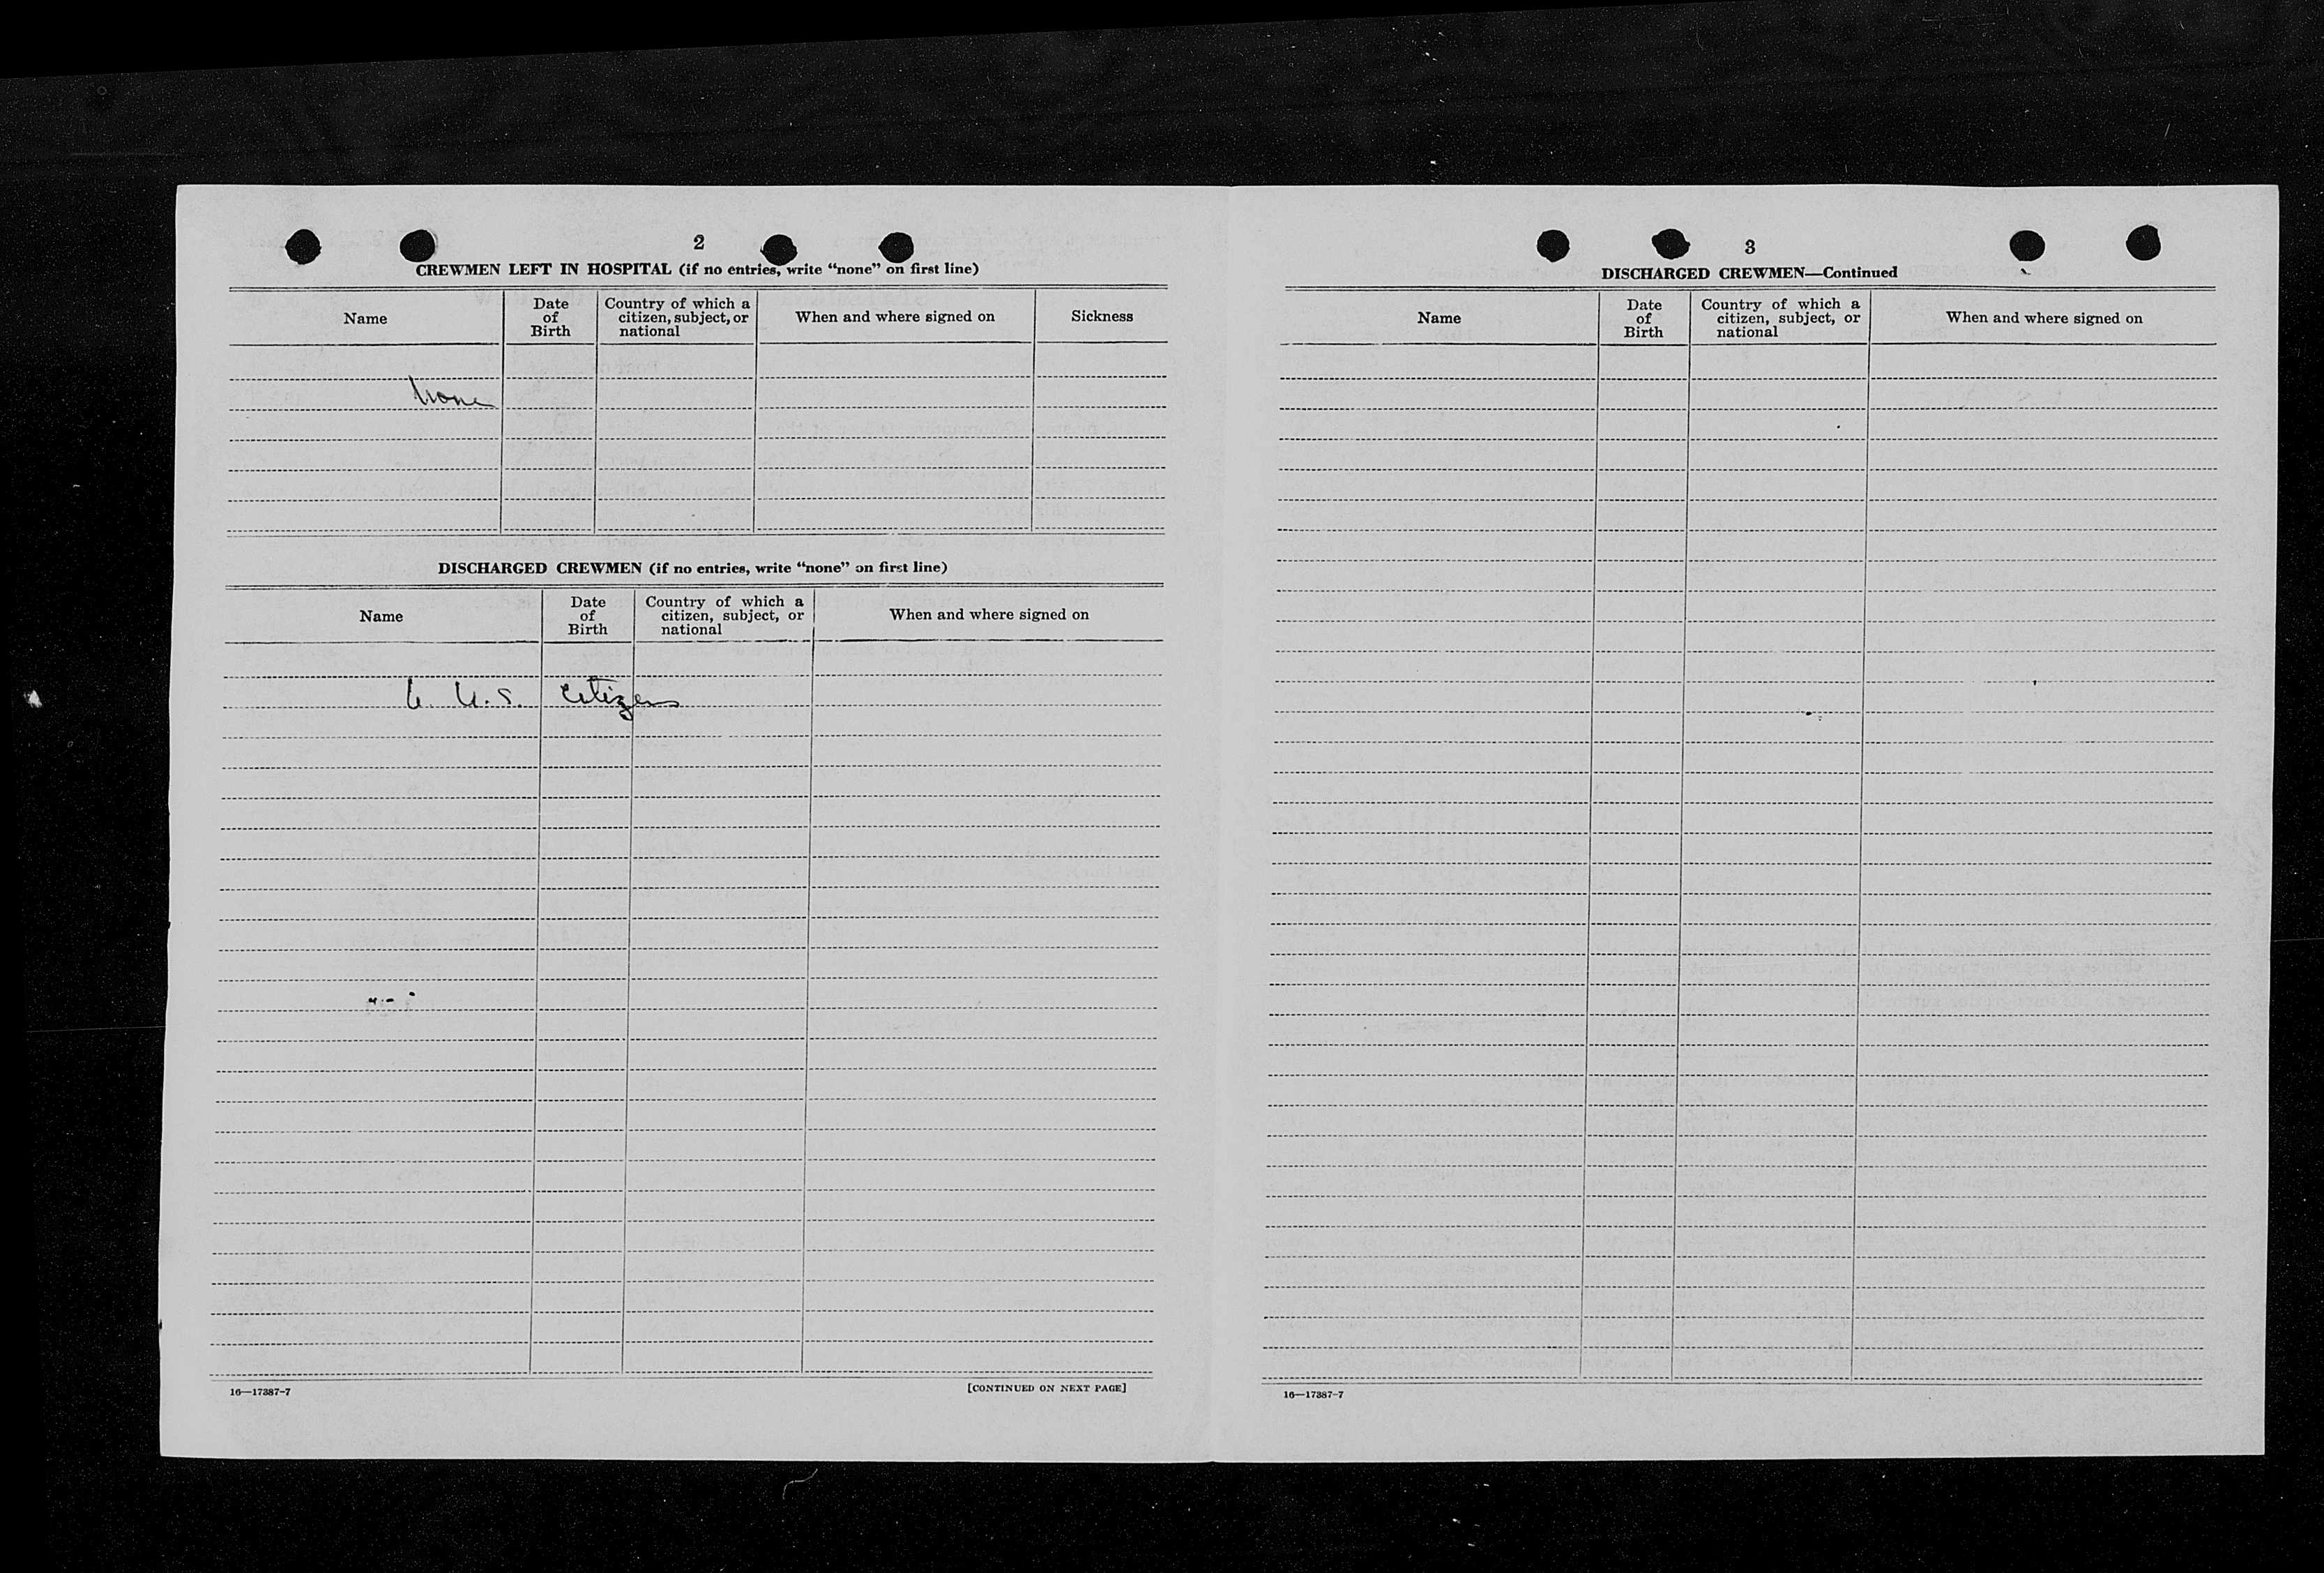 2
CREWMEN LEFT IN HOSPITAL (if no entries, write “none” on first line)
Name
Date of Birth
Country of which a citizen, subject, or national
When and where signed on
Sickness
None
DISCHARGED CREWMEN (if no entries, write “none” on first line)
Name
Date of Birth
Country of which a citizen, subject, or national
When and where signed on
U.S. Citizens
16—17387-7
[CONTINUED ON NEXT PAGE]
3
DISCHARGED CREWMEN—Continued
Name
Date of Birth
Country of which a citizen, subject, or national
When and where signed on
16—17387-7